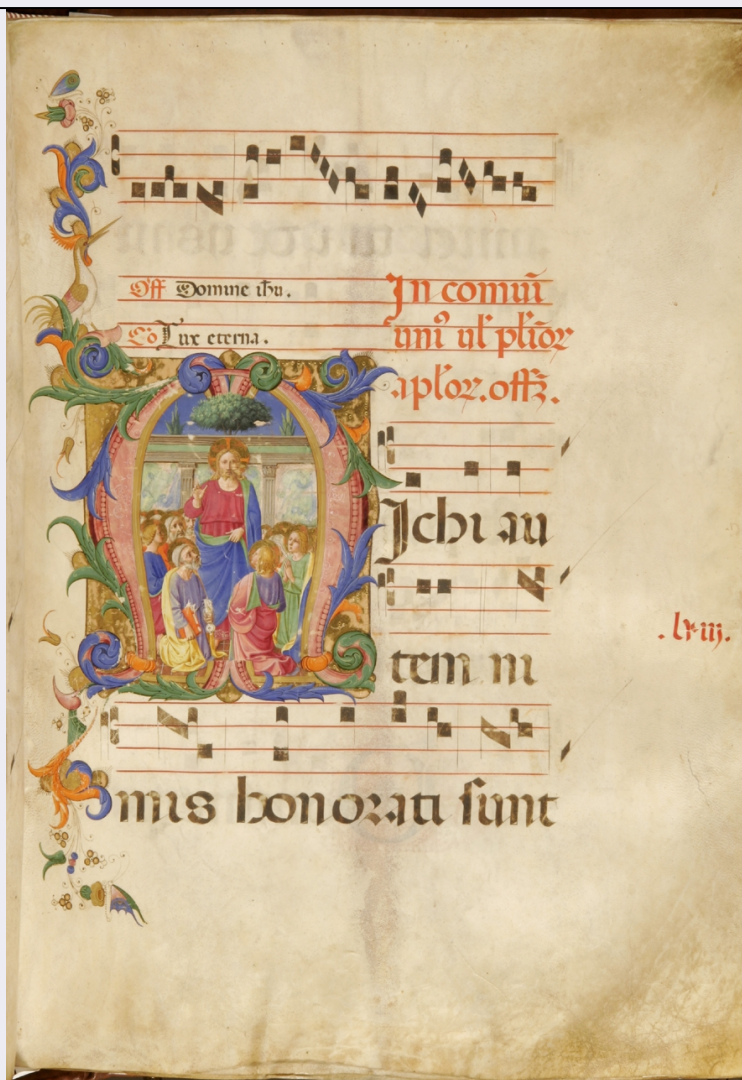 Off Domine ihu.
Co Lux eterna.
In comuī
uniꝰ ul' pl'ior
apl'oꝝ. offꝫ.
Ichi au
tem ni
mis honorati sunt
.lxiij.